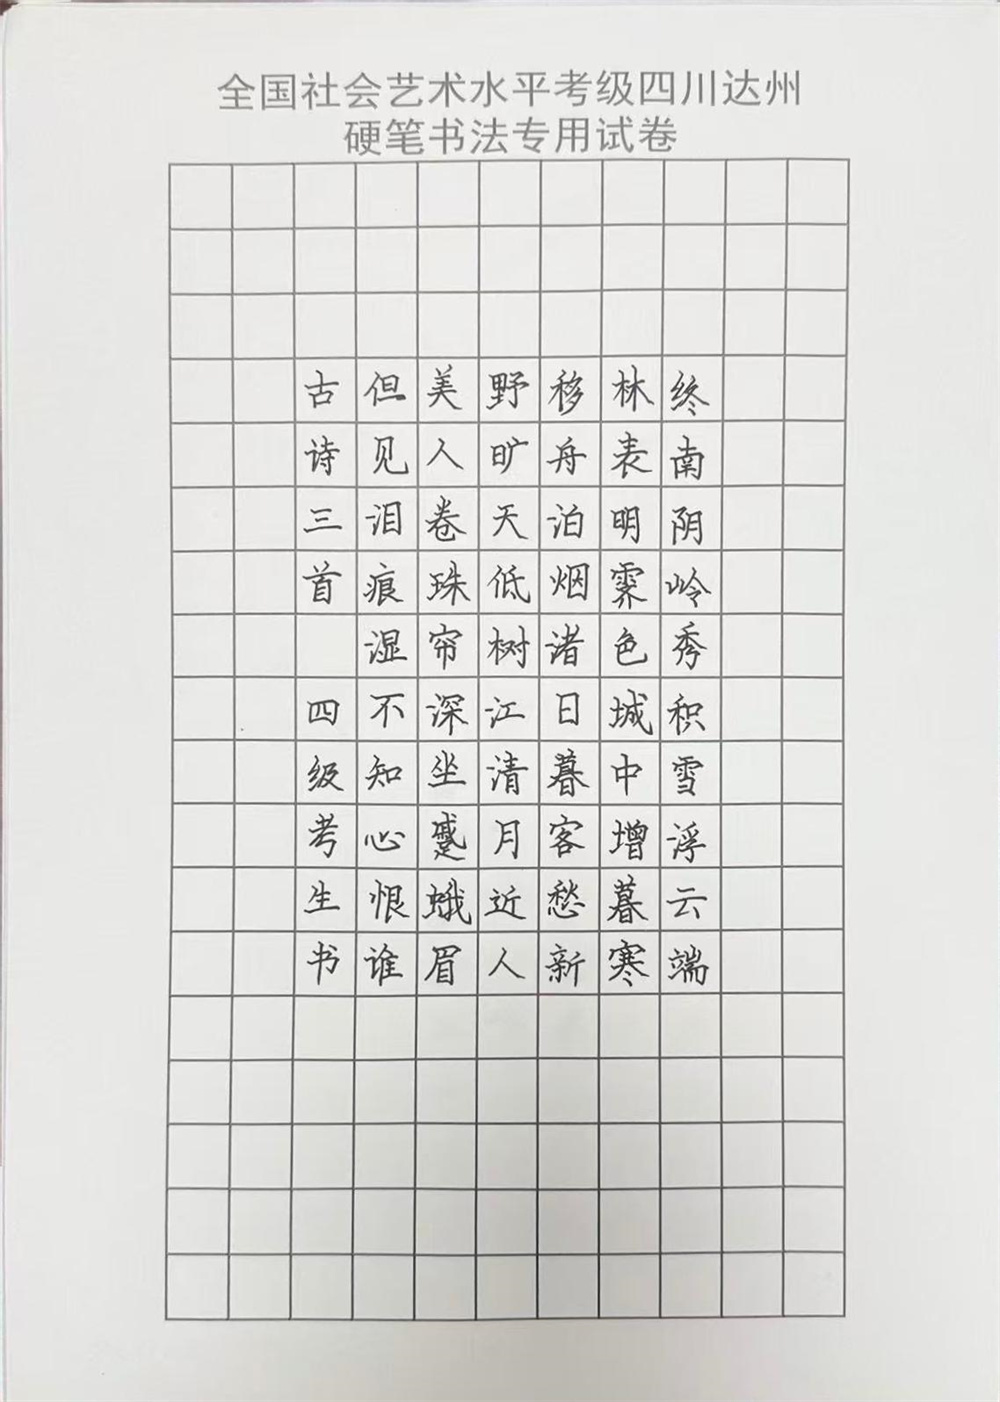 全国社会艺术水平考级四川达州
硬笔书法专用试卷
终南阴岭秀积雪浮云端
林表明霁色城中增暮寒
移舟泊烟渚日暮客愁新
野旷天低树江清月近人
美人卷珠帘深坐蹙蛾眉
但见泪痕湿不知心恨谁
古诗三首 四级考生书